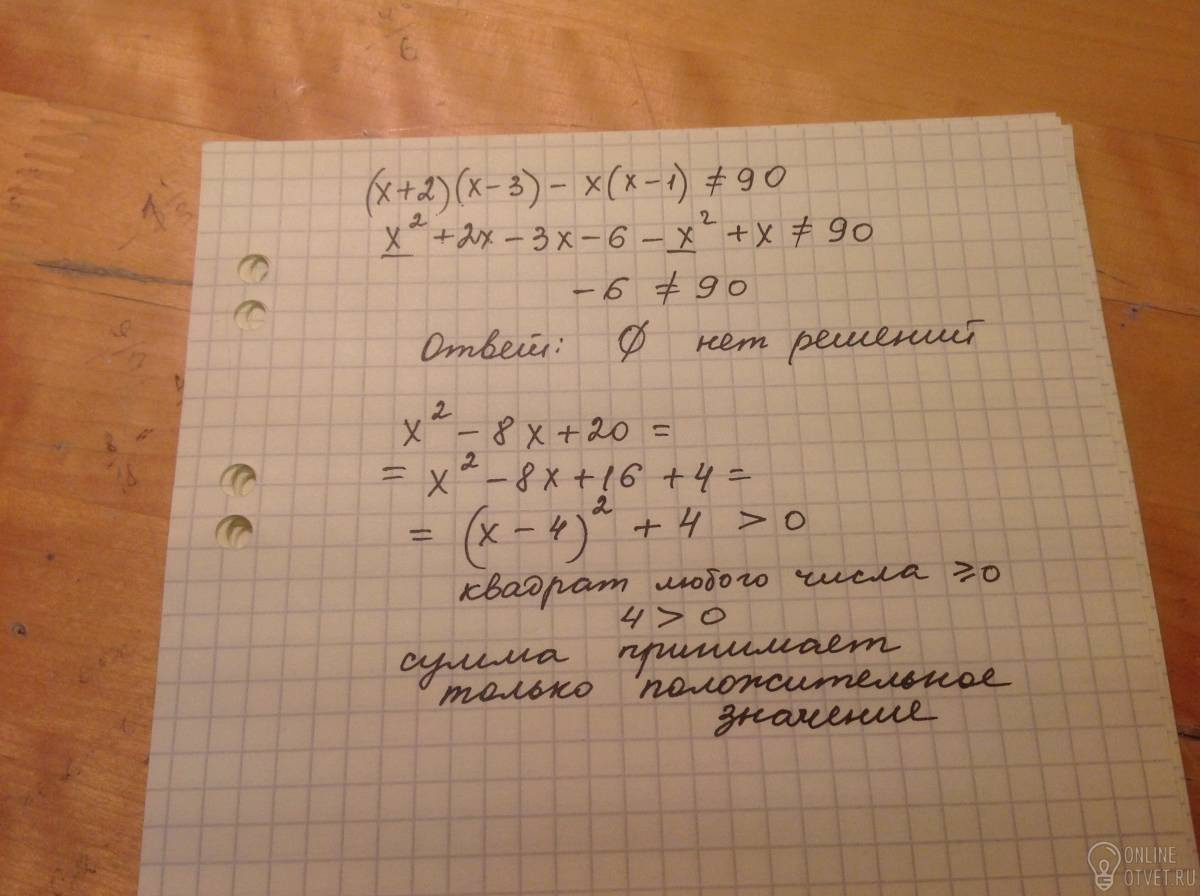 (x+2)(x-3) - x(x-1) ≠ 90
x² + 2x - 3x - 6 - x² + x ≠ 90
-6 ≠ 90
Ответ: ∅ нет решений
x² - 8x + 20 =
= x² - 8x + 16 + 4 =
= (x - 4)² + 4 > 0
квадрат любого числа ≥ 0
4 > 0
сумма принимает
только положительное
значение
ONLINE
OTVET.RU